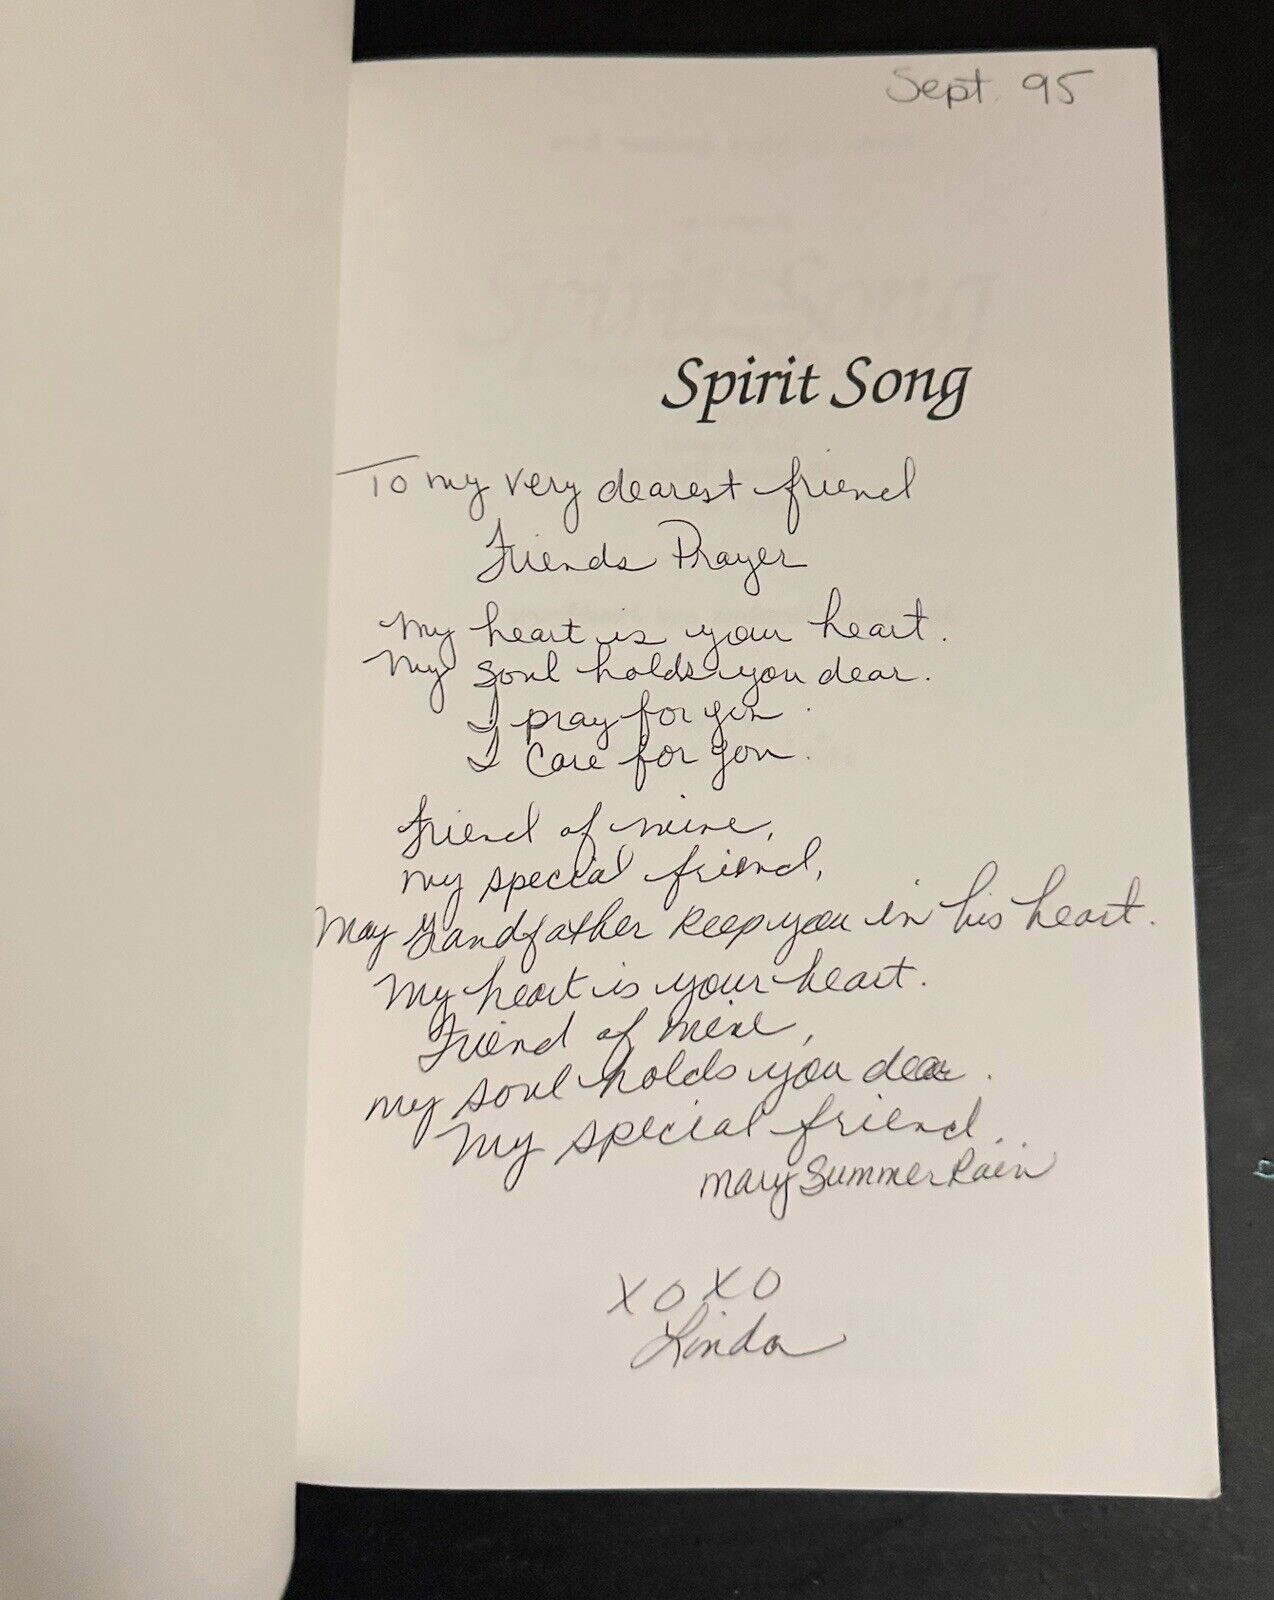 Sept. 95
Spirit Song
To my very dearest friend
Friends Prayer
My heart is your heart.
My soul holds you dear.
I pray for you.
I care for you.
Friend of mine,
my special friend,
May Grandfather keep you in his heart.
My heart is your heart.
Friend of mine,
my soul holds you dear.
My special friend..
Mary Summer Rain
XOXO
Linda